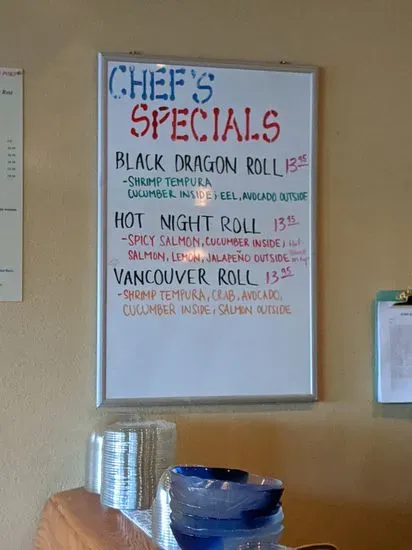 CHEF'S
SPECIALS
BLACK DRAGON ROLL 13.95
-SHRIMP TEMPURA
CUCUMBER INSIDE; EEL, AVOCADO OUTSIDE
HOT NIGHT ROLL 13.95
-SPICY SALMON, CUCUMBER INSIDE; Hot
SALMON, LEMON, JALAPEÑO OUTSIDE on top!
VANCOUVER ROLL 13.95
-SHRIMP TEMPURA, CRAB, AVOCADO,
CUCUMBER INSIDE; SALMON OUTSIDE